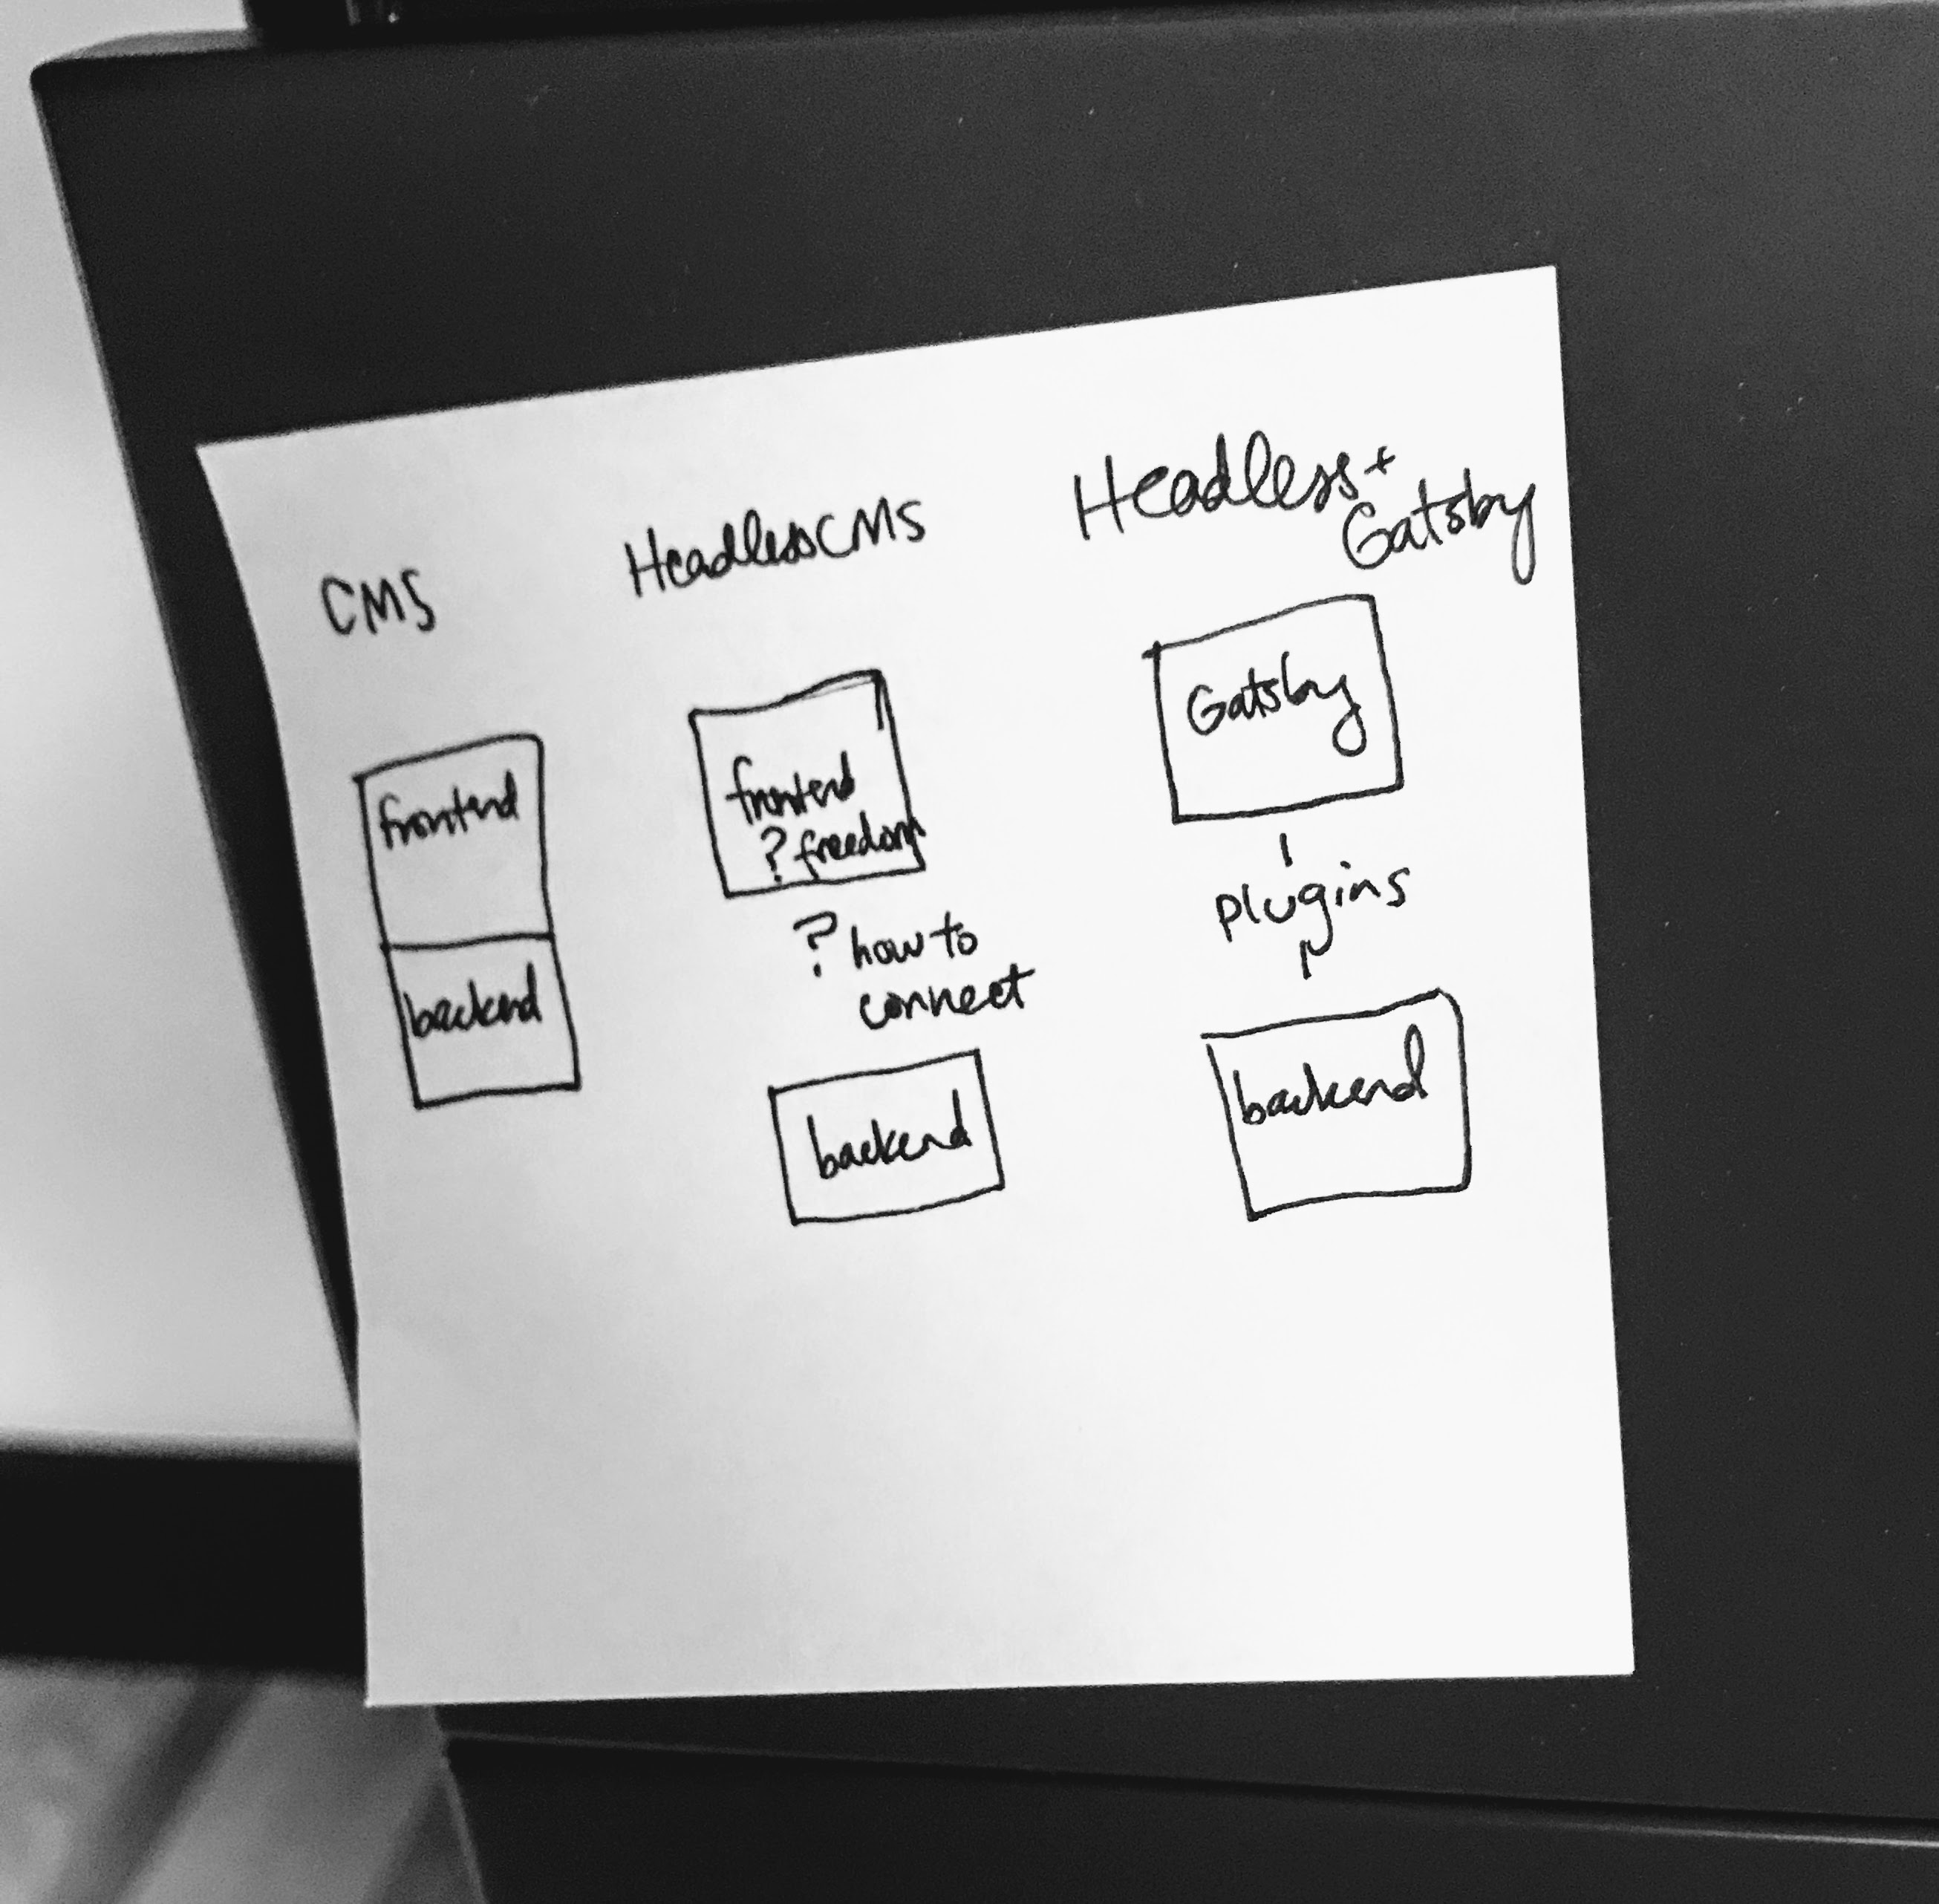 CMS
frontend
backend
Headless CMS
frontend
? freedom
? how to
connect
backend
Headless +
Gatsby
Gatsby
plugins
backend